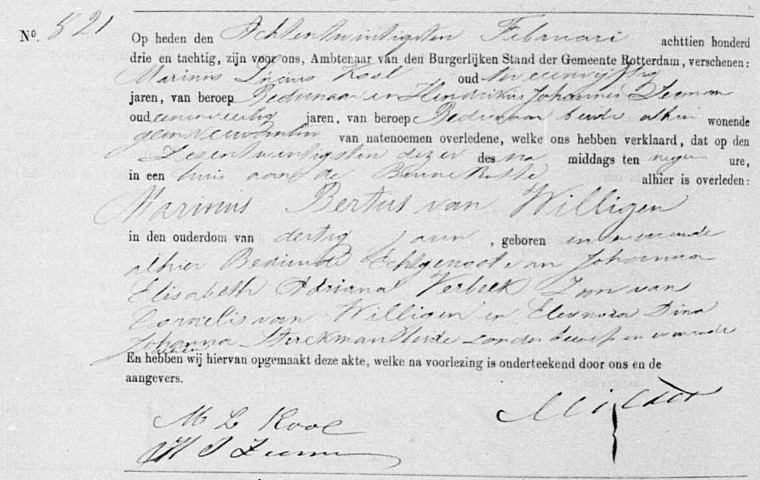 No. 821
Op heden den Achtentwintigsten Februari achttien honderd
drie en tachtig, zijn voor ons, Ambtenaar van den Burgerlijken Stand der Gemeente Rotterdam, verschenen:
Marinus Kool oud
jaren, van beroep Bedienaar en Hendrikus Johannes
oud jaren, van beroep Bedienaar beide alhier wonende
van natenoemen overledene, welke ons hebben verklaard, dat op den
Zesentwintigsten dezer des na middags ten negen ure,
in een huis aan de alhier is overleden:
Marinus Bertus van Willigen
in den ouderdom van dertig jaren, geboren en wonende
alhier Bediende Echtgenoot van Johanna
Elisabeth Adriana Verbeek Zoon van
Cornelis van Willigen en Eleonora Dina
Johanna Sterckman beide zonder beroep en wonende
alhier
En hebben wij hiervan opgemaakt deze akte, welke na voorlezing is onderteekend door ons en de
aangevers.
M L Kool
H J